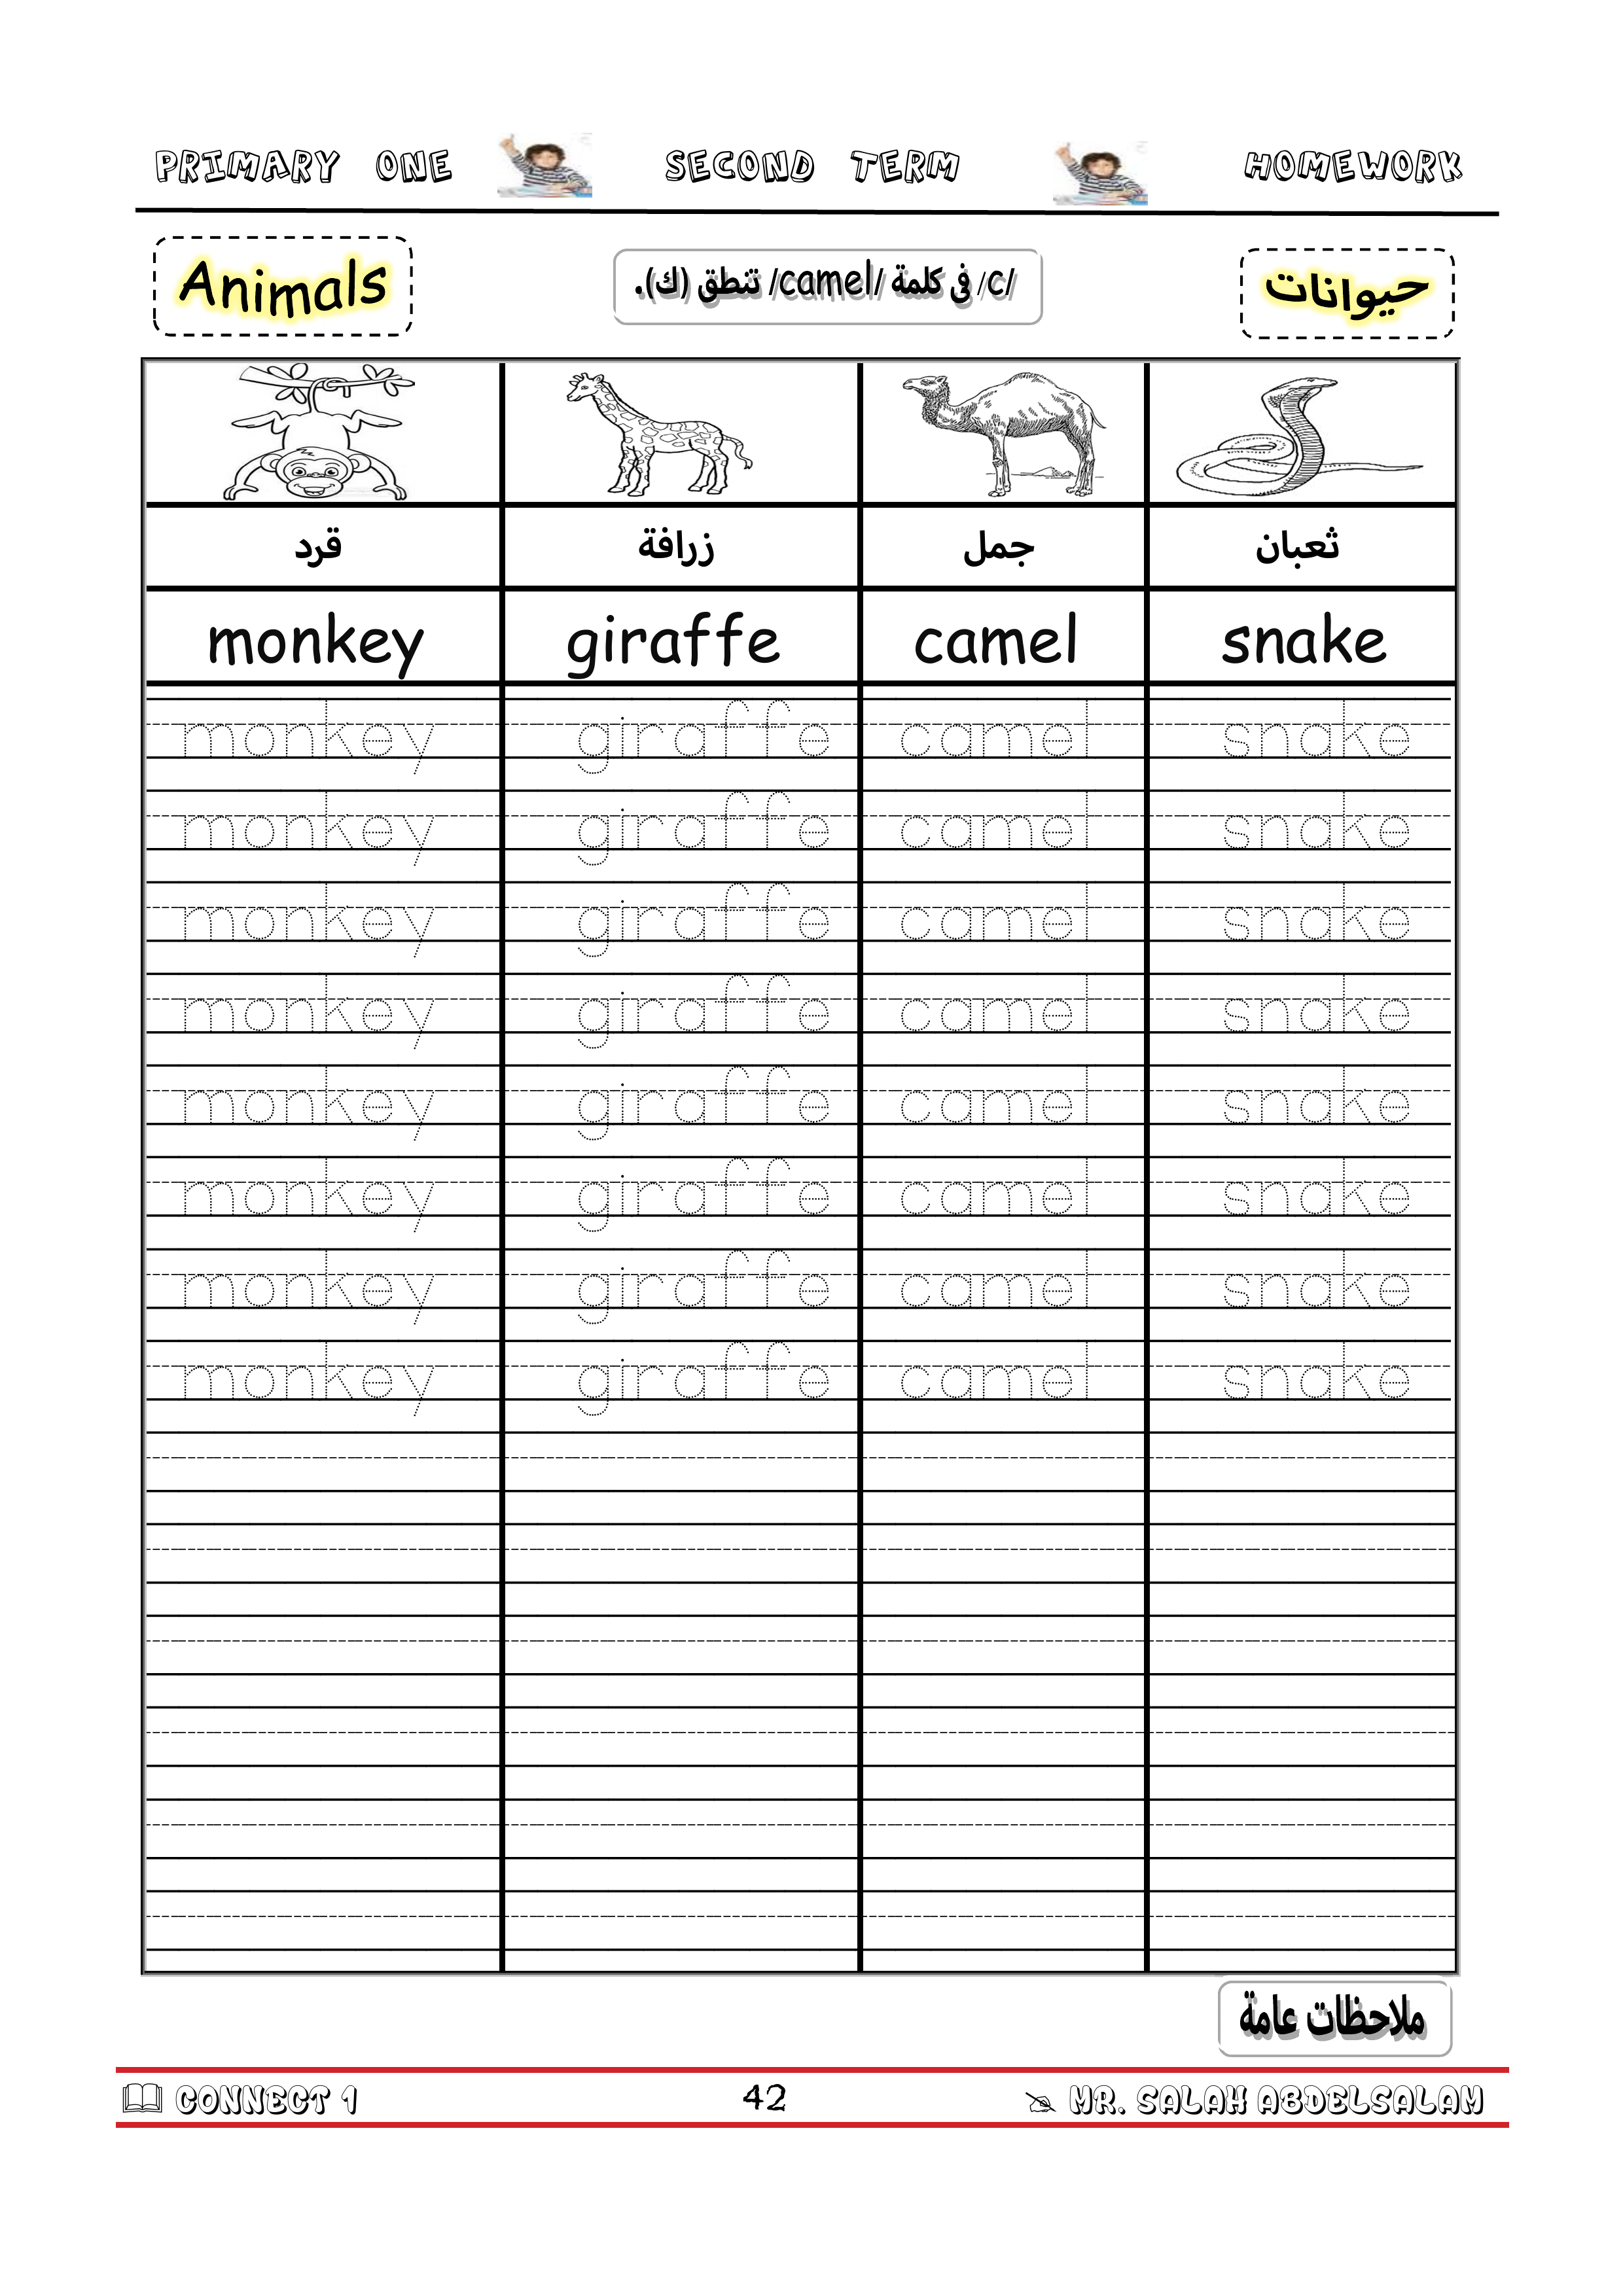 PRIMARY ONE SECOND TERM HOMEWORK
Animals
/c/ فى كلمة /camel/ تنطق (ك).
حيوانات
قرد زرافة جمل ثعبان
monkey giraffe camel snake
monkey giraffe camel snake
monkey giraffe camel snake
monkey giraffe camel snake
monkey giraffe camel snake
monkey giraffe camel snake
monkey giraffe camel snake
monkey giraffe camel snake
monkey giraffe camel snake
ملاحظات عامة
CONNECT 1 42 MR. SALAH ABDELSALAM